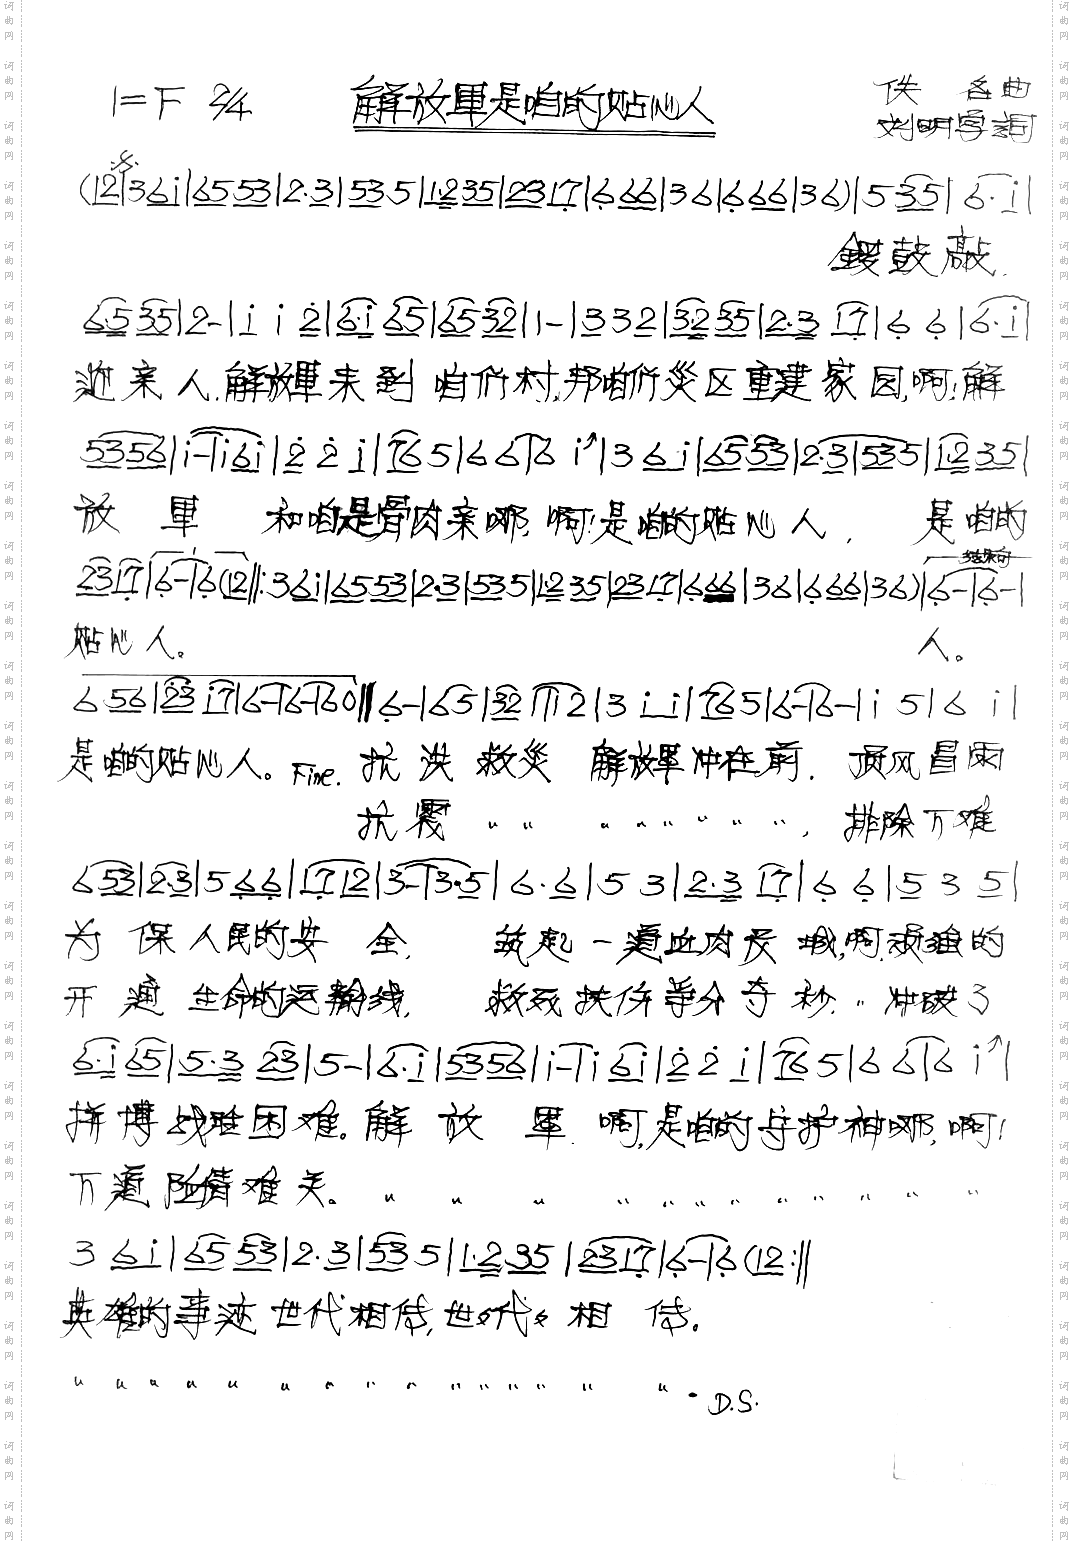 1=F 2/4 解放军是咱的贴心人 佚名曲
刘明学词
(12|36i|6553|2·3|535|1·235|2317|666|36|666|36)|5 35|6·i|
锣鼓敲
6·535|2-|i i 2|6·i 65|6532|1-|332|3·2 35|2·3 17|6 6|6·i|
迎亲人,解放军来到咱们村,帮咱们災区重建家园,啊!解
5356|i-|i6i|2 2 i|765|66|6 i|3 6i|6553|2·3|535|1·235|
放军 和咱是骨肉亲哪,啊!是咱的贴心人, 是咱的
2317|6-|6(12‖:36i|6553|2·3|535|1·235|2317|666|36|666|36)|6-|6-|
结束句
贴心人。 人。
656|23 i7|6-|6-|60‖6-|65|32 1|12|3 i i|765|6-|6-|i 5|6 i|
是咱的贴心人。Fine. 抗洪救災 解放军冲在前, 顶风冒雨
抗震 〃 〃 〃 〃 〃 〃 〃 〃, 排除万难
653|2·3|566|1712|3-|3·5|6·6|53|2·3 17|6 6|5 3 5|
为保人民的安全, 筑起一道血肉长城,啊,顽强的
开通生命的运输线, 救死扶伤争分夺秒,〃 冲破了
6·i 65|5·3 23|5-|6·i|5356|i-|i 6i|2 2 i|765|6 6|6 i|
拼搏战胜困难。解放军 啊,是咱的守护神哪,啊!
万道险情难关。〃 〃 〃 〃 〃 〃 〃 〃 〃 〃 〃 〃
3 6i|6553|2·3|535|1·235|2317|6-|6(12:‖
英雄的事迹世代相传,世々代々相传。
〃 〃 〃 〃 〃 〃 〃 〃 〃 〃 〃 〃 〃 〃 〃。 D.S.
词曲网